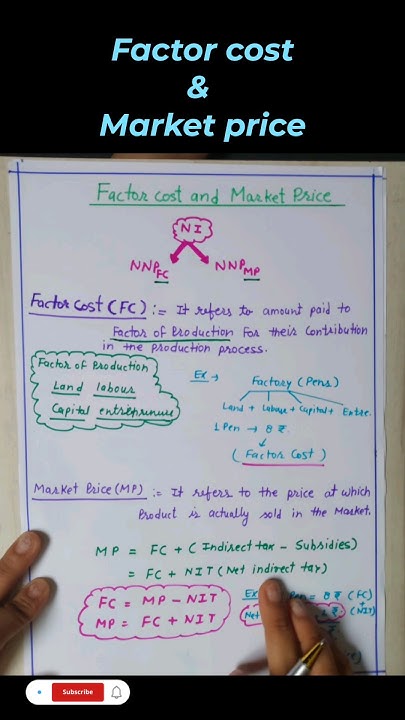 Factor cost
&
Market price
Factor cost and Market Price
NI
NNP FC NNP MP
Factor Cost (FC) := It refers to amount paid to
Factor of Production For their Contribution
in the production process.
Factor of Production
Land labour
Capital entrepreneur
Ex → Factory (Pens)
Land + Labour + Capital + Entre.
1 Pen → 8 ₹.
↓
(Factor Cost)
Market Price (MP) := It refers to the price at which
Product is actually sold in the Market.
MP = FC + (Indirect tax - Subsidies)
= FC + NIT (Net indirect tax)
FC = MP - NIT
MP = FC + NIT
Ex = 8 ₹ (FC)
+
Net ₹ (NIT)
Subscribe